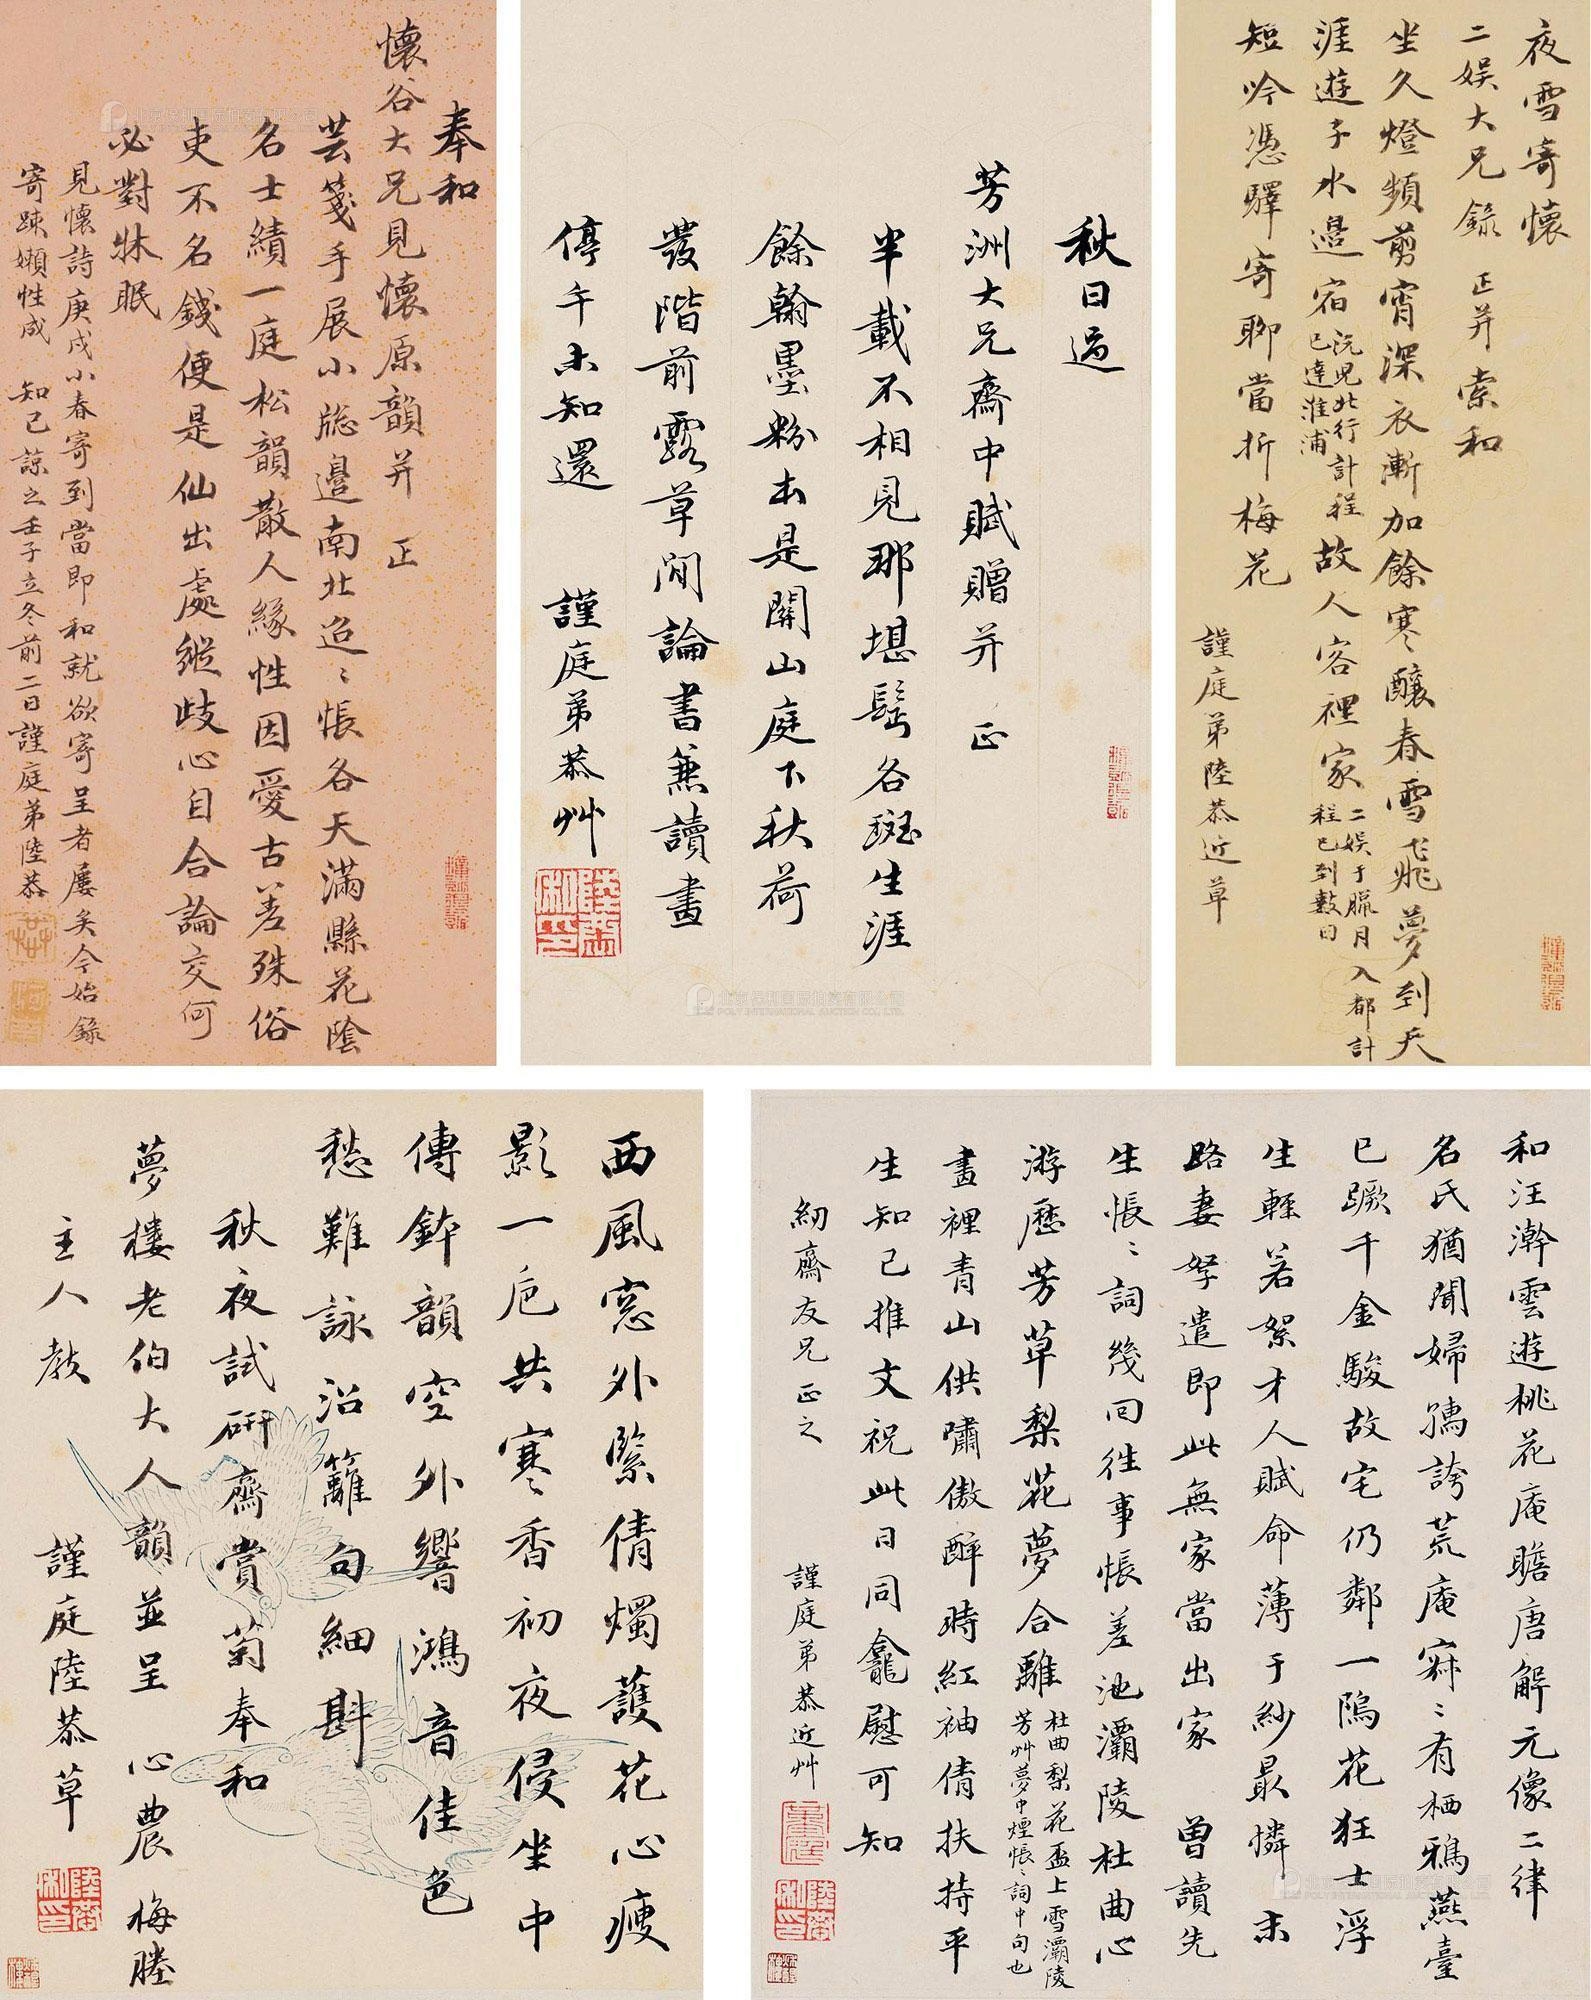 夜雪寄懷
二娱大兄錄 正并索和
坐久燈頻剪宵深衣漸加餘寒釀春雪飛夢到天
涯遊子水邊宿沅兒北行計程已達淮浦故人客裡家二娱于臘月入都計程已到數日
短吟憑驛寄聊當折梅花
謹庭弟陸恭近草
秋日過
芳洲大兄齋中賦贈并 正
半載不相見那堪髩各斑生涯
餘翰墨粉本是關山庭下秋荷
發階前露草閒論書兼讀畫
停午未知還 謹庭弟恭艸
奉和
懷谷大兄見懷原韻并 正
芸箋手展小牕邊南北迢〻悵各天滿縣花陰
名士績一庭松韻散人緣性因愛古差殊俗
吏不名錢便是仙出處縱歧心自合論交何
必對牀眠
見懷詩庚戌小春寄到當即和就欲寄呈者屢矣今始錄
寄疎嬾性成 知己諒之壬子立冬前二日謹庭弟陸恭
和汪澣雲遊桃花庵瞻唐解元像二律
名氏猶聞婦孺誇荒庵寂〻有栖鴉燕臺
已蹶千金駿故宅仍鄰一隖花狂士浮
生輕若絮才人賦命薄于紗最憐末
路妻孥遣即此無家當出家 曾讀先
生悵〻詞幾回往事悵差池灞陵杜曲心
游歷芳草梨花夢合離杜曲梨花盃上雪灞陵芳艸夢中煙悵〻詞中句也
畫裡青山供嘯傲醉時紅袖倩扶持平
生知己推文祝此日同龕慰可知
紉齋友兄正之 謹庭弟恭近艸
西風窓外緊倩燭護花心瘦
影一巵共寒香初夜侵坐中
傳鉢韻空外響鴻音佳色
愁難詠沿籬句細斟
秋夜試研齋賞菊奉和
夢樓老伯大人韻並呈 心農 梅塍
主人教 謹庭陸恭草